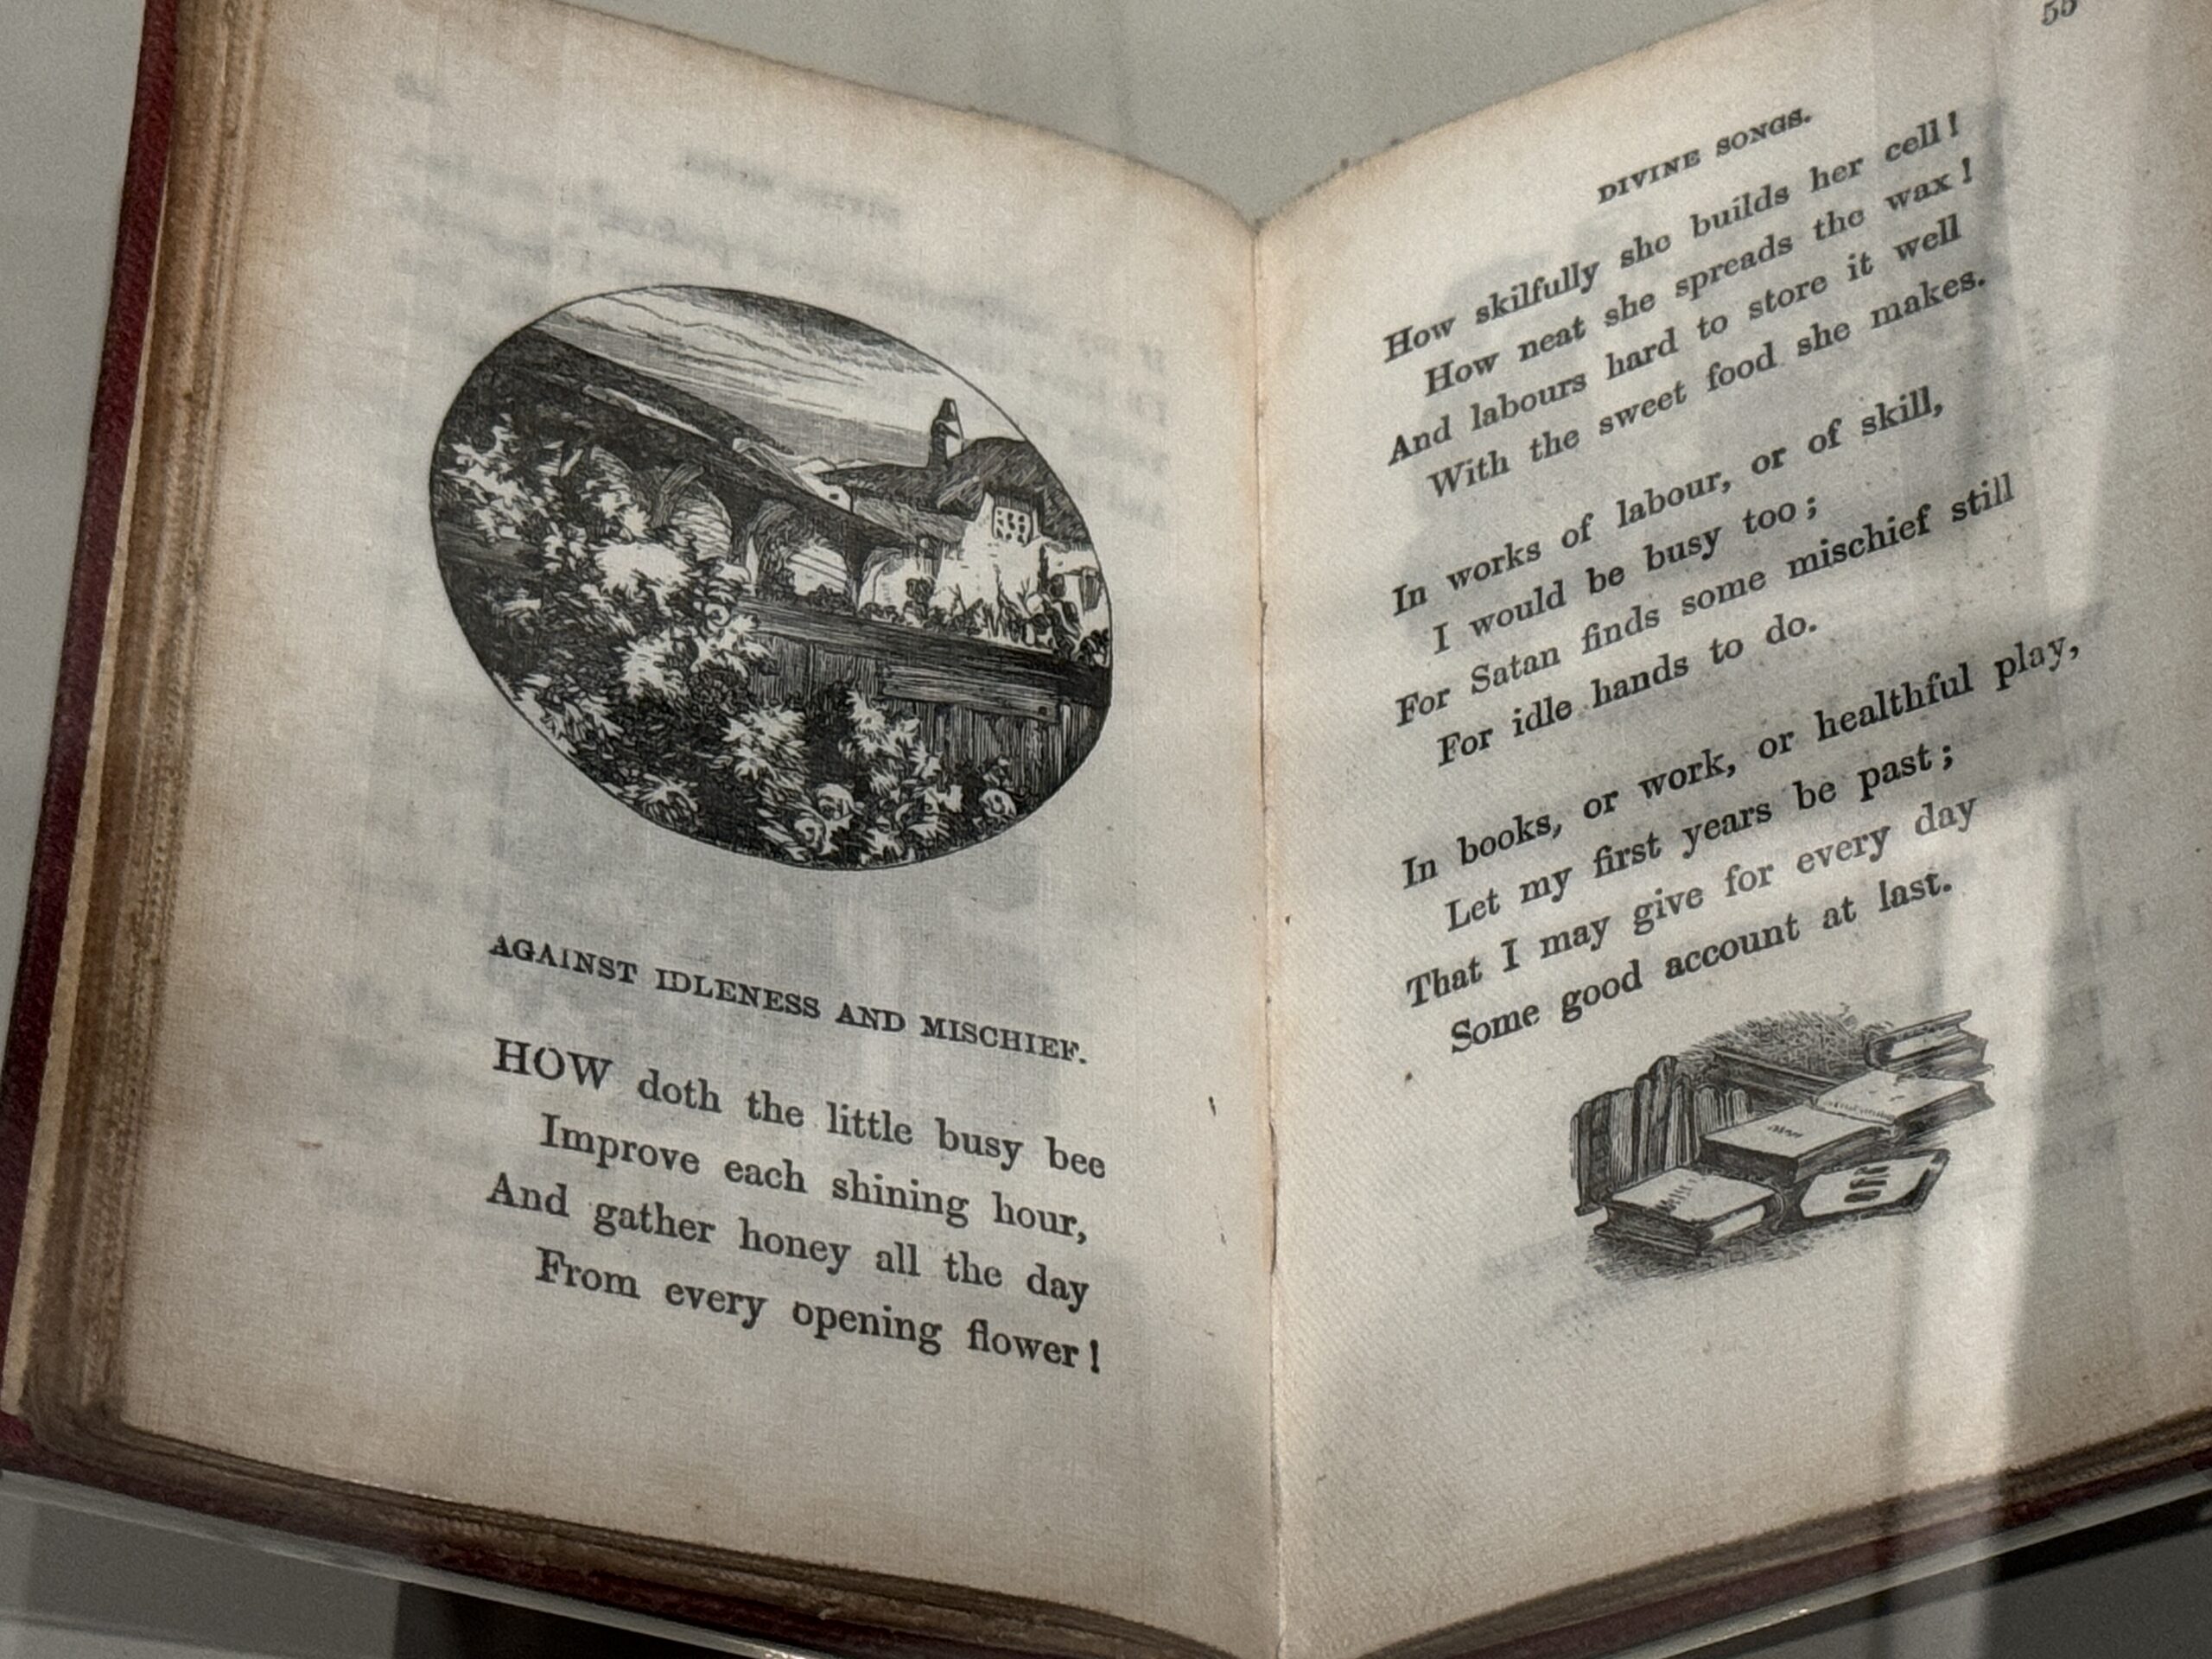 AGAINST IDLENESS AND MISCHIEF.
HOW doth the little busy bee
Improve each shining hour,
And gather honey all the day
From every opening flower!
55
DIVINE SONGS.
How skilfully she builds her cell!
How neat she spreads the wax!
And labours hard to store it well
With the sweet food she makes.
In works of labour, or of skill,
I would be busy too;
For Satan finds some mischief still
For idle hands to do.
In books, or work, or healthful play,
Let my first years be past;
That I may give for every day
Some good account at last.